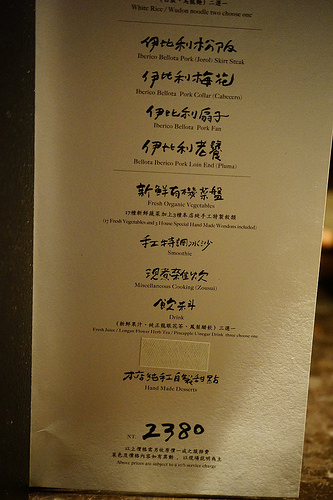 White Rice / Wudon noodle two choose one
伊比利松阪
Iberico Bellota Pork (Jowl) Skirt Steak
伊比利梅花
Iberico Bellota Pork Collar (Cabecero)
伊比利扇子
Iberico Bellota Pork Fan
伊比利老饕
Bellota Iberico Pork Loin End (Pluma)
新鮮有機菜盤
Fresh Organic Vegetables
17種新鮮蔬菜加上3種本店純手工特製餃類
(17 Fresh Vegetables and 3 House Special Hand Made Wondons included)
手工特調冰沙
Smoothie
現煮雜炊
Miscellaneous Cooking (Zousui)
飲料
Drink
(新鮮果汁、純正龍眼花茶、鳳梨醋飲) 三選一
Fresh Juice / Longan Flower Herb Tea / Pineapple Vinegar Drink three choose one
本店純手工自製甜點
Hand Made Desserts
NT. 2380
以上價格需另收原價一成之服務費
菜色及價格內容如有異動，以現場說明為主
Above prices are subject to a 10% service charge